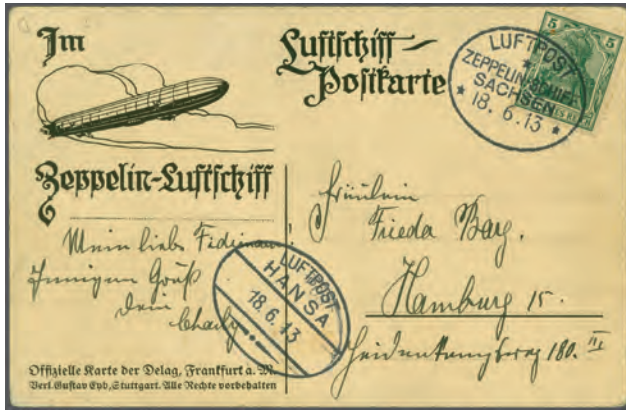 Im
Zeppelin-Luftschiff
Luftschiff-
Postkarte
5 5
LUFTPOST
ZEPPELINSCHIFF
SACHSEN
* 18. 6. 13 *
Mein liebe
Innigen Gruß
Dein
Charly
LUFTPOST
HANSA
18. 6. 13
Fräulein
Frieda Barg.
Hamburg 15.
Heidenkampsweg 180. III
Offizielle Karte der Delag, Frankfurt a. M.
Verl. Gustav Eyb, Stuttgart. Alle Rechte vorbehalten